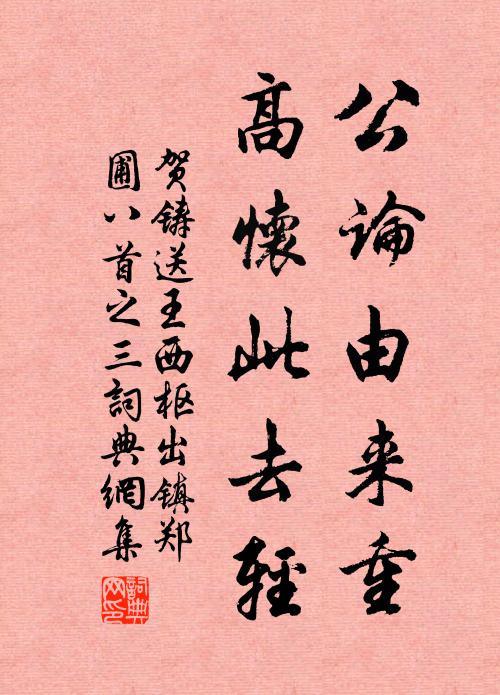 公论由来重
高懷此去輕
贺铸送王西枢出镇郑
圃八首之三詞典網集
詞典网印